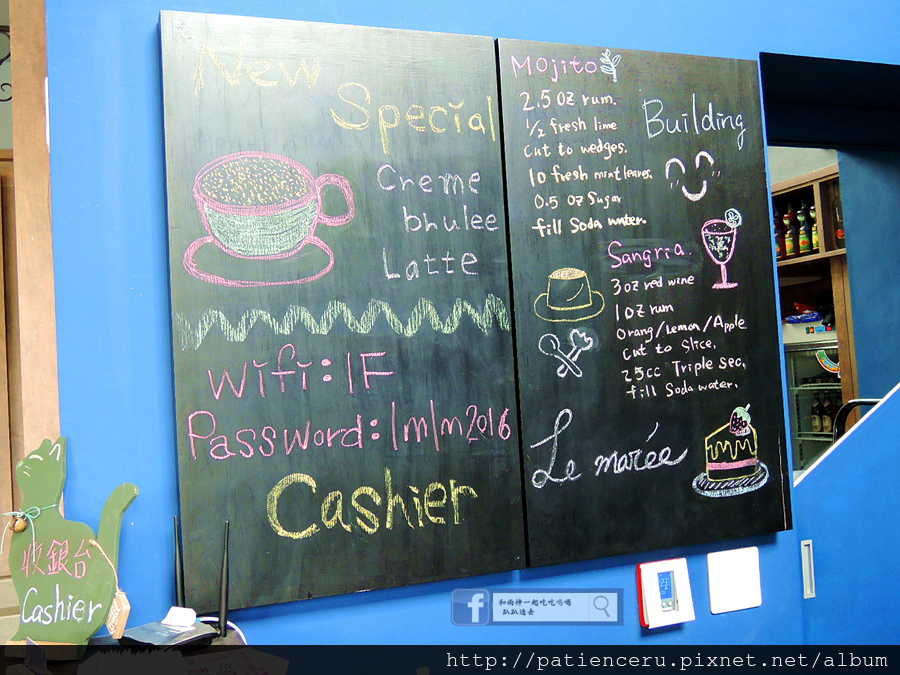 New
Special
Creme
bhulee
Latte
Wifi:1F
Password:1m1m2016
Cashier
Mojito
2.5 oz rum.
1/2 fresh lime
Cut to wedges.
10 fresh mint leaves.
0.5 oz Sugar
fill Soda water.
Building
Sangria.
3 oz red wine
1 oz rum
Orang/Lemon/Apple
Cut to Slice.
25cc Triple sec.
fill Soda water.
Le marée
收銀台
Cashier
f
和兩神一起吃吃喝喝
趴趴造去
http://patienceru.pixnet.net/album